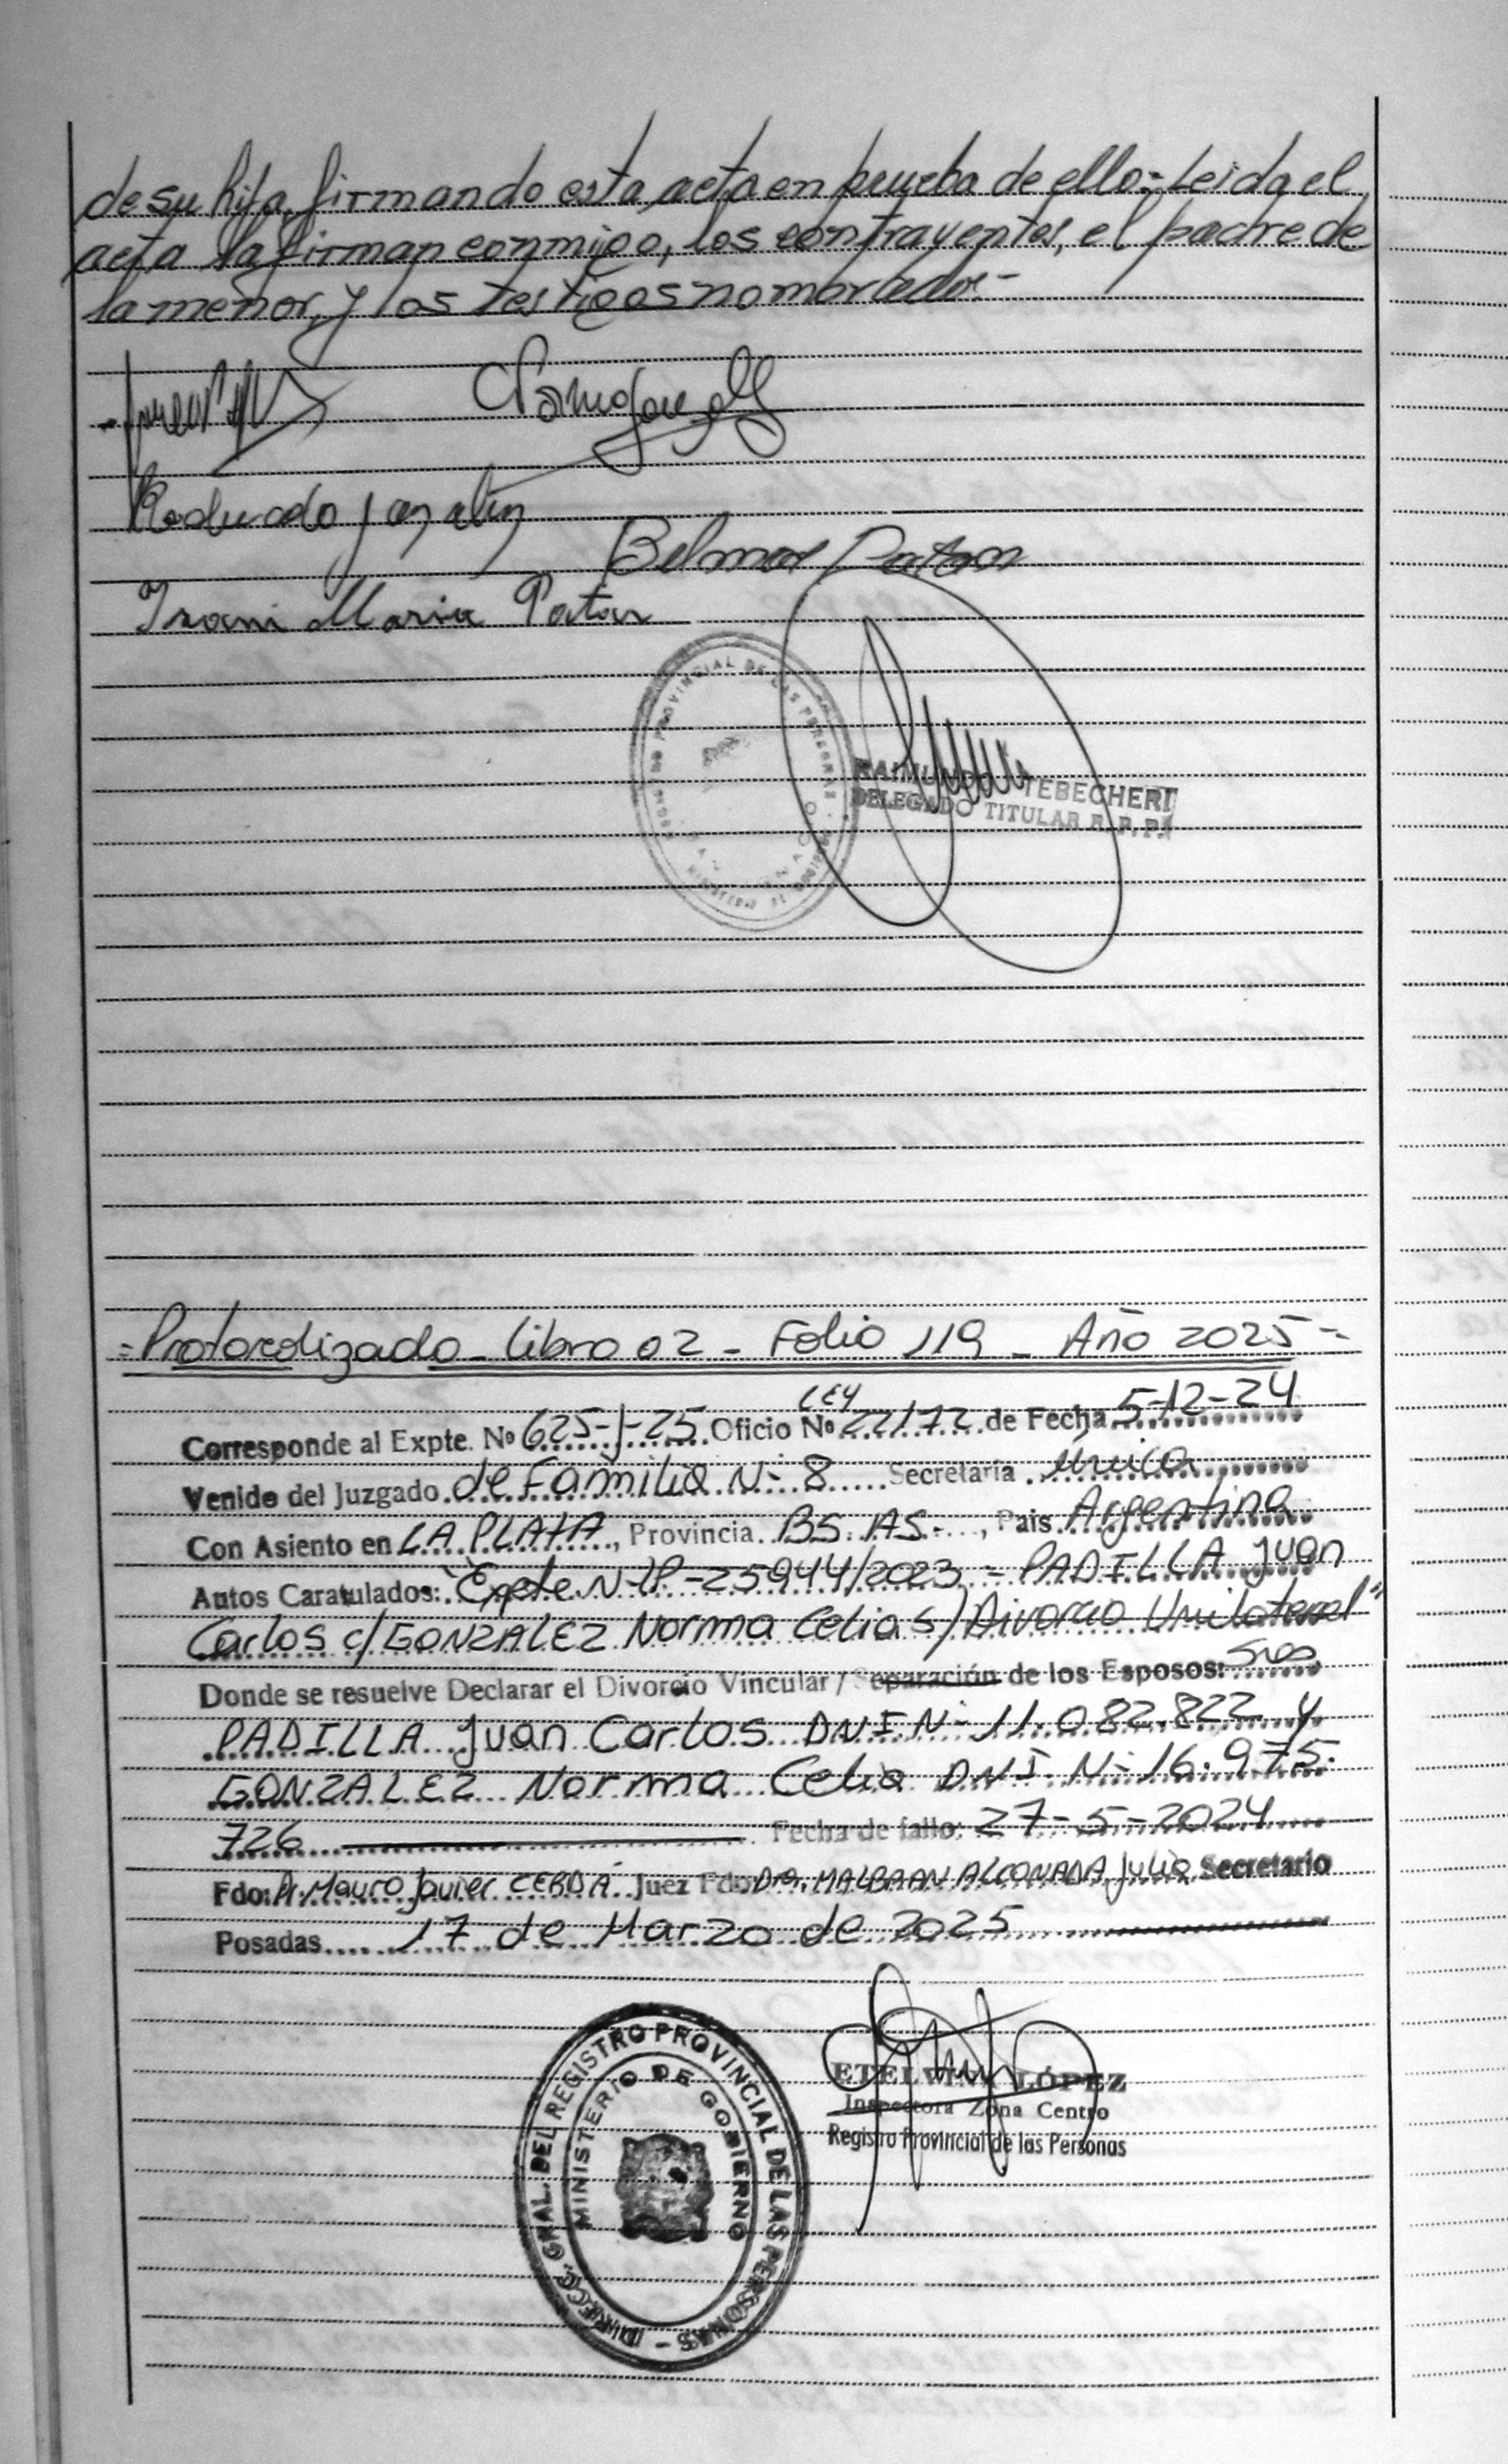 de su hija, firmando esta acta en prueba de ello:- Leida el
acta la firman conmigo, los contrayentes, el padre de
la menor, y los testigos nombrados.-
Belmar Patan
Irani Maria Patan
RAIMUNDO TEBECHERI
DELEGADO TITULAR R. P. P.
=Protocolizado - libro 02 - Folio 119 - Año 2025=
LEY
Corresponde al Expte. Nº 625-J-25 Oficio Nº 22172 de Fecha 5-12-24
Venido del Juzgado de Familia N- 8 Secretaría Unica
Con Asiento en LA PLATA, Provincia BS. AS.-, Pais Argentina
Autos Caratulados: "Expte N-LP-25944/2023 = PADILLA Juan
Carlos c/ GONZALEZ Norma Celia S/Divorcio Unilateral"
Donde se resuelve Declarar el Divorcio Vincular / Separación de los Esposos: Sres
PADILLA Juan Carlos DNI N- 11.082.822 y
GONZALEZ Norma Celia DNI N- 16.975.
726 Fecha de fallo: 27-5-2024
Fdo: Dr. Mauro Javier CERDÁ Juez Fdo: Dra. MALBRAN ALCONADA Julia Secretario
Posadas 17 de Marzo de 2025
DIRECC. GRAL. DEL REGISTRO PROVINCIAL DE LAS PERSONAS -
MINISTERIO DE GOBIERNO
ETELVINA LÓPEZ
Inspectora Zona Centro
Registro Provincial de las Personas